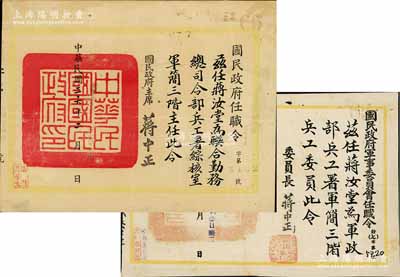 上海阳明拍卖
国民政府任職令
茲任蔣汝堂為聯合勤務
總司令部兵工署綜核室
軍簡三階主任此令
國民政府主席 蔣中正
中華民國
月
日
中華民國國民政府印
國民政府軍事委員會任職令
茲任蔣汝堂為軍政
部兵工署軍簡三階
兵工委員此令
委員長 蔣中正
月
日